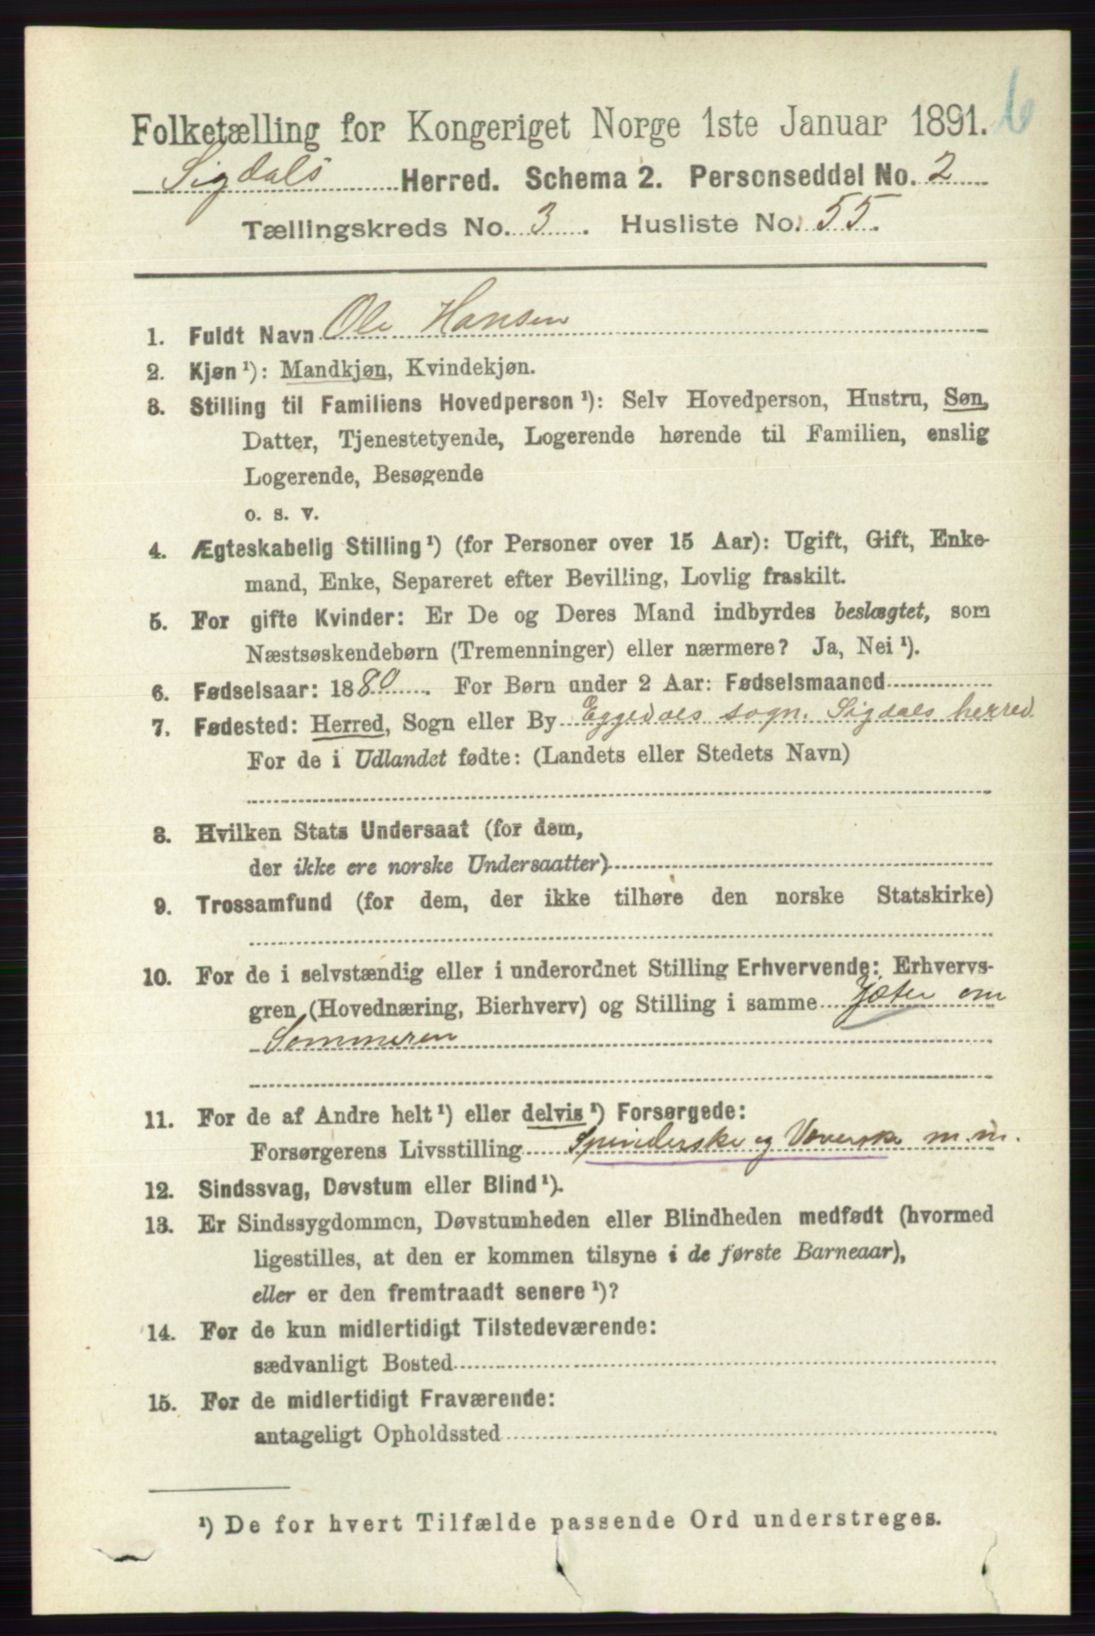 6
Folketælling for Kongeriget Norge 1ste Januar 1891.
Sigdals Herred. Schema 2. Personseddel No. 2
Tællingskreds No. 3. Husliste No. 55.
1. Fuldt Navn Ole Hansen
2. Kjøn ¹): Mandkjøn, Kvindekjøn.
3. Stilling til Familiens Hovedperson ¹): Selv Hovedperson, Hustru, Søn,
Datter, Tjenestetyende, Logerende hørende til Familien, enslig
Logerende, Besøgende
o. s. v.
4. Ægteskabelig Stilling ¹) (for Personer over 15 Aar): Ugift, Gift, Enke-
mand, Enke, Separeret efter Bevilling, Lovlig fraskilt.
5. For gifte Kvinder: Er De og Deres Mand indbyrdes beslægtet, som
Næstsøskendebørn (Tremenninger) eller nærmere? Ja, Nei ¹).
6. Fødselsaar: 1880. For Børn under 2 Aar: Fødselsmaaned
7. Fødested: Herred, Sogn eller By Eggedals sogn. Sigdals herred
For de i Udlandet fødte: (Landets eller Stedets Navn)
8. Hvilken Stats Undersaat (for dem,
der ikke ere norske Undersaatter)
9. Trossamfund (for dem, der ikke tilhøre den norske Statskirke)
10. For de i selvstændig eller i underordnet Stilling Erhvervende: Erhvervs-
gren (Hovednæring, Bierhverv) og Stilling i samme Jæter om
Sommeren
11. For de af Andre helt ¹) eller delvis ¹) Forsørgede:
Forsørgerens Livsstilling Spinderske og Væverske m.m.
12. Sindssvag, Døvstum eller Blind ¹).
13. Er Sindssygdommen, Døvstumheden eller Blindheden medfødt (hvormed
ligestilles, at den er kommen tilsyne i de første Barneaar),
eller er den fremtraadt senere ¹)?
14. For de kun midlertidigt Tilstedeværende:
sædvanligt Bosted
15. For de midlertidigt Fraværende:
antageligt Opholdssted
¹) De for hvert Tilfælde passende Ord understreges.